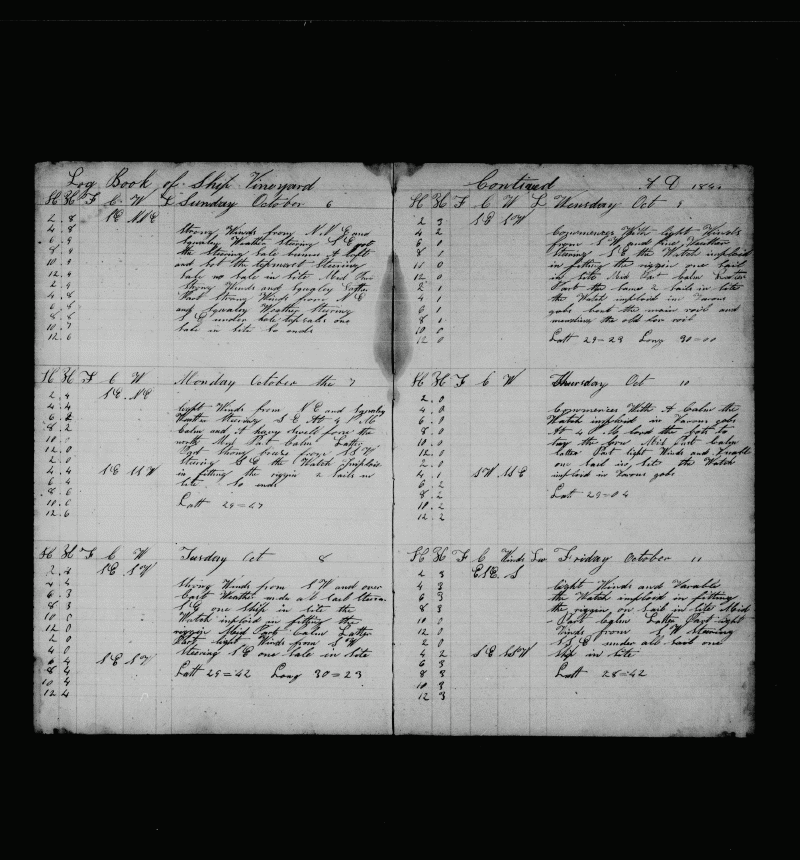 Log Book of Ship Vineyard
H K F C W L Sunday October 6
2 . 8 SE NNE
4 . 8 Strong Winds from N.N.E and
6 . 9 Squaley Weather Stering S E got
8 . 9 the Steering Sale a loft
10 . 9 and Set the topmast Steering
12 . 9 Sale no Sale in Site Mid Part
2 . 9 Strong Winds and Squaley Latter
4 . 8 Part Strong Winds from N E
6 . 8 and Squaley Weather Stering
8 . 8 S E under hole topsales one
10 . 7 Sale in Site So ends
12 . 6
H K F C W Monday October the 7
2 . 4 SE NE
4 . 4 Light Winds from N E and Squaley
6 . 2 Weather Stering S E At 4 P M
8 . 2 Calm and A heavy Swell from the
10 . 0 north Mid Part Calm Latter
12 . 0 Part Strong from SSW
2 . 0 Steering S E the Watch Imploid
4 . 4 SE SSW in fitting the riggin 2 Sails in
6 . 4 Site So ends
8 . 6
10 . 6 Latt 29=47
12 . 6
H K F C W Tuesday Oct 8
2 . 4 SE SW
4 4 Strong Winds from S W and over
6 . 3 Cast Weather under all Sail
8 3 S E one Ship in Site the
10 0 Watch imploid in fitting the
12 0 riggin Mid Part Calm Latter
2 0 Part light Winds from S W
4 0 Steering S E one Sale in Site
6 4 SE SW
8 4 Latt 29=42 Long 30=23
10 4
12 4
Continued A D 184
H K F C W L Wensday Oct 9
2 3 SE SW
4 2 Commences With light Winds
6 0 from S W and fine Weather
8 1 Steering S E the Watch imploid
10 0 in fitting the riggin one Sail
12 0 in Site Mid Part Calm Latter
2 1 Part the Same 2 Sails in Site
4 1 the Watch imploid in Varous
6 1 gobs bent the main and
8 1 mending the old
10 0
12 0 Latt 29=29 Long 30=00
H K F C W Thursday Oct 10
2 . 0
4 . 0 Commences With A Calm the
6 . 0 Watch imploid in Varous gobs
8 . 0 At 4 P M lowd the boat to
10 . 0 the Mid Part Calm
12 . 0 latter Part light Winds and Varable
2 . 0 one Sail in Site the Watch
4 . 1 SW SSE imploid in Varous gobs
6 . 2
8 . 2 Latt 29=04
10 . 2
12 . 2
H K F C Winds Friday October 11
2 3 ESE S
4 3 Light Winds and Varable
6 3 the Watch imploid in fitting
8 3 the riggin on Sail in Site Mid
10 0 Part Calm Latter Part light
12 0 Winds from S W Steering
2 0 S E under all Sail one
4 2 SE SSW Ship in Site
6 3
8 3 Latt 28=42
10 3
12 3